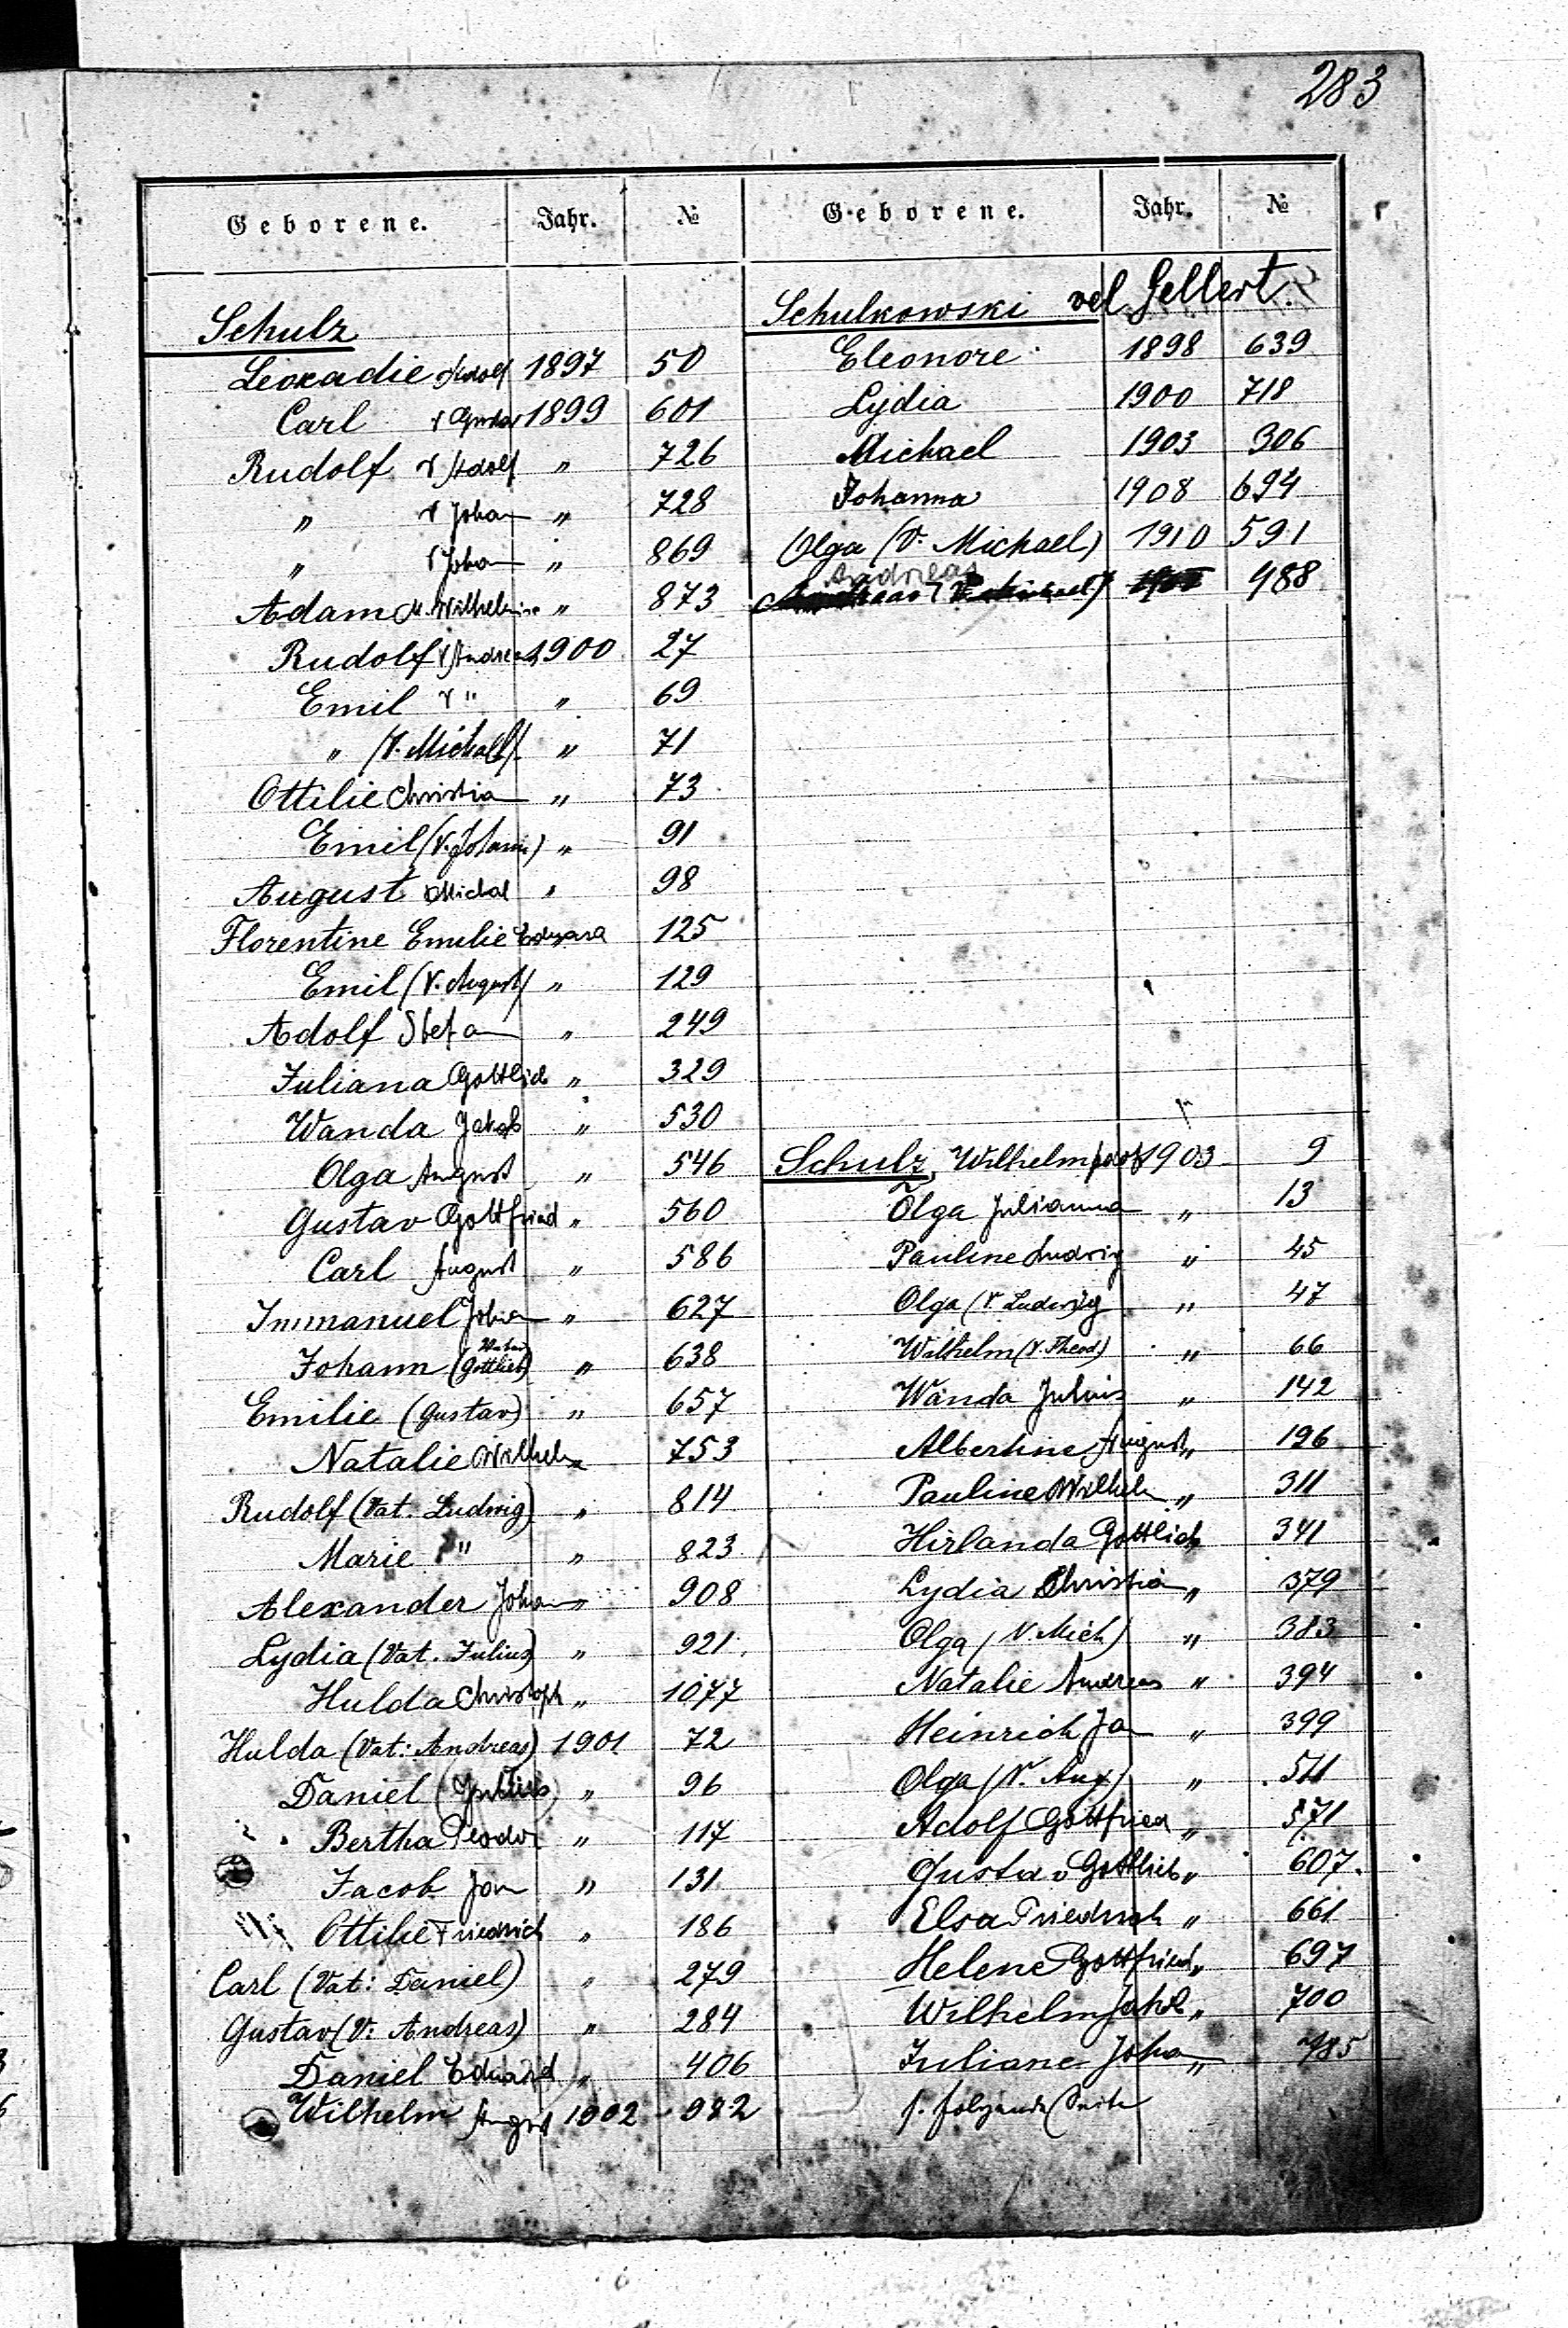 283
Geborene. Jahr. №
Schulz
Leokadie Adolf 1897 50
Carl v Gustav 1899 601
Rudolf v Adolf " 726
" v Johan " 728
" v Johan " 869
Adam M. Wilhelmine " 873
Rudolf v Andreas 1900 27
Emil v " " 69
" (V. Michael) " 71
Ottilie Christian " 73
Emil (V. Johann) " 91
August Michal " 98
Florentine Emilie Edward 125
Emil (V. August) " 129
Adolf Stefan " 249
Juliana Gottlieb " 329
Wanda Jakob " 530
Olga August " 546
Gustav Gottfried " 560
Carl August " 586
Immanuel Johan " 627
Johann (Vater Gottlieb) " 638
Emilie (Gustav) " 657
Natalie Wilhelm 753
Rudolf (Vat. Ludwig) " 814
Marie " " 823
Alexander Johan " 908
Lydia (Vat. Julius) " 921
Hulda Christoph " 1077
Hulda (Vat: Andreas) 1901 72
Daniel (Julius) " 96
Bertha Teodor " 117
Jacob Jan " 131
Ottilie Friedrich " 186
Carl (Vat: Daniel) " 279
Gustav (V: Andreas) " 284
Daniel Eduard " 406
Wilhelm August 1902 982
Geborene. Jahr. №
Schulkowski vel Gellert
Eleonore 1898 639
Lydia 1900 718
Michael 1903 306
Johanna 1908 694
Olga (V. Michael) 1910 591
Andreas 488
Schulz, Wilhelm Adolf 1903 9
Olga Julianna " 13
Pauline Ludwig " 45
Olga (V. Ludwig) " 47
Wilhelm (V. Theod.) " 66
Wanda Julius " 142
Albertine August " 196
Pauline Wilhelm " 311
Hirlanda Gottlieb 341
Lydia Christian " 379
Olga (V. Mich) " 383
Natalie Andreas " 394
Heinrich Jan " 399
Olga (V. Aug) " 511
Adolf Gottfried " 571
Gustav Gottlieb " 607
Elsa Friedrich " 661
Helene Gottfried " 697
Wilhelm " 700
Juliane Johan " 785
s. folgende Seite